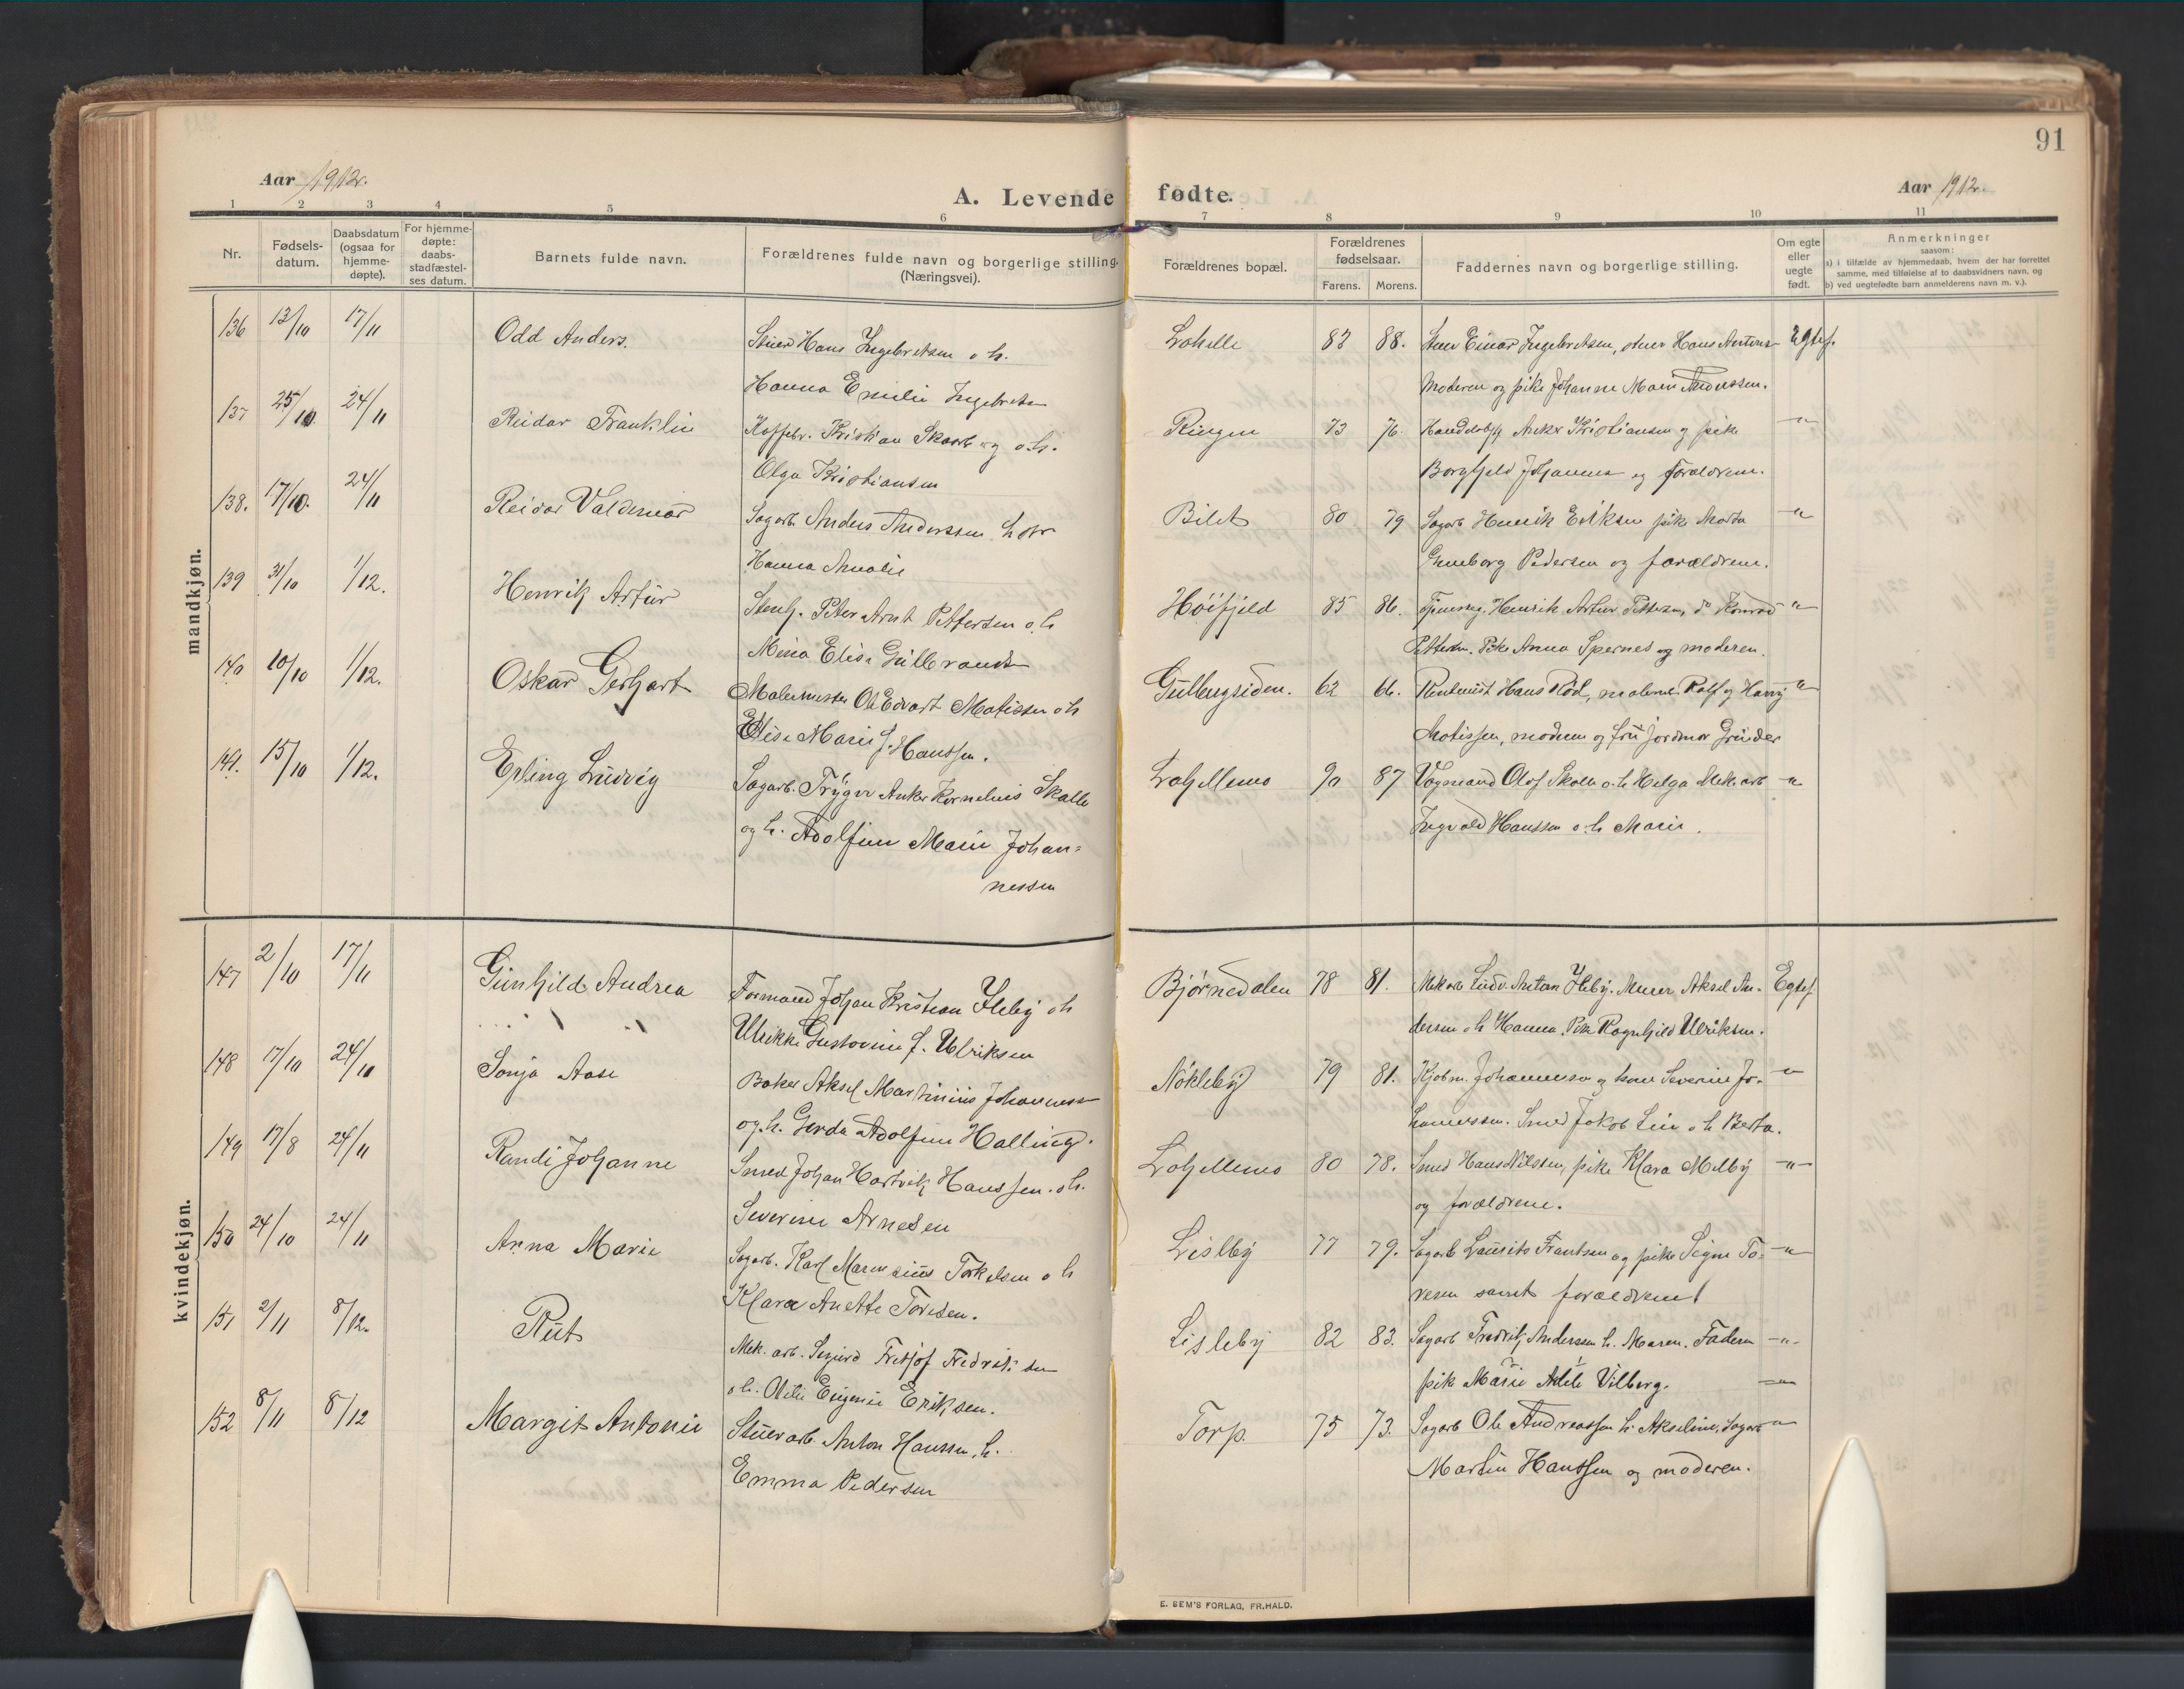 91
Aar 1912.
A. Levende fødte.
Aar 1912.
1 2 3 4 5 6 7 8 9 10 11
Nr.
Fødsels-
datum.
Daabsdatum
(ogsaa for
hjemme-
døpte).
For hjemme-
døpte:
daabs-
stadfæstel-
ses datum.
Barnets fulde navn.
Forældrenes fulde navn og borgerlige stilling.
(Næringsvei).
Forældrenes bopæl.
Forældrenes
fødselsaar.
Farens. Morens.
Faddernes navn og borgerlige stilling.
Om egte
eller
uegte
født.
Anmerkninger
saasom:
a) i tilfælde av hjemmedaab, hvem der har forrettet
samme, med tilføielse af to daabsvidners navn, og
b) ved uegtefødte barn anmelderens navn m. v.).
mandkjøn.
136 13/10 17/11 Odd Anders. Stuer Hans Ingebretsen o h. 83 88. Stuer Einar Ingebretsen, stuer Hans Egtef.
Hanna Emilie Ingebretsen Moderen og pike Johanne Marie Anderssen.
137 25/10 24/11 Reidar Franklin Kristian Skaarberg o.h. Ringen 73 76. Anker Kristiansen og pike -"-
Olga Kristiansen Borghild Johanna og forældrene.
138. 17/10. 24/11 Reidar Valdemar Sagarb. Anders Anderssen h Bilet 80 79 Sagarb Henrik Eriksen pike Marta -"-
Hanna Amalie Pedersen og forældrene.
139 31/10 1/12. Henrik Artur Stenh. Peter Arnt Pettersen o.h Høifjeld 85 86. Henrik Artur Pettersen, do Konrad -"-
Mina Elise Gulbrandsen Pettersen. Pike Anna Spernes og moderen.
140 10/10 1/12. Oskar Gerhart Malermester Ole Edvart Matissen o h Gulbergsiden. 62 66. Rentenist Hans Rød, malerne Rolf og Harry -"-
Elise Marie f. Hanssen. Matissen, moderen og fru jordmor Grinder
141. 15/10 1/12. Erling Ludvig Sagarb. Trygve Anker Kornelius Skolle Lahellemo 90 87 Vognmand Olaf Skolle o.h Helga Mek.arb -"-
og h. Adolfine Marie Johan= Ingvald Hanssen o.h Marie.
nessen
kvindekjøn.
147 2/10 17/11 Gunhild Andrea Formand Johan Kristian Ileby o h Bjørnedalen 78 81. Mekarb Ludv. Antan Ileby. Murer Aksel An- Egtef.
Ulrikke Gustavine f. Ulriksen dersen o h Hanna. Pike Ragnhild Ulriksen.
148 17/10 24/10 Sonja Aase Baker Aksel Martinius Johannessen Nøkleby 79 81. Kjøbm. Johannessen og Severine Jo- -"-
og.h. Gerda Adolfine Halling. hannessen. Smed Jakob Lie o h Berta.
149 17/8 24/11 Randi Johanne Smed Johan Hartvik Hanssen. o h. Lahellemo 80 78. Smed Hans Nilssen, pike Klara Melby -"-
Severine Arnesen og forældrene.
150 24/10 24/11 Anna Marie Sagarb. Karl Marensius Torkelsen o h Lisleby 77 79. Sagarb Laurits Frantsen og pike Signe To- -"-
Klara Anette Toresen. resen samt forældrene
151 2/11 8/12. Rut Mek. arb. Sigurd Fritjof Fredriksen Lisleby 82 83. Sagarb Fredrik Anderssen h. Maren. Faderen -"-
o h. Otilie Eugenie Eriksen. pike Marie Adele Vilberg. -"-
152 8/11 8/12 Margit Antonie Stuerarb. Anton Hanssen. h. Torp. 75 73. Sagarb Ole Andreassen h. Akseline, Sagarb -"-
Emma Pedersen Martin Hanssen og moderen.
E. SEM'S FORLAG, FR.HALD.